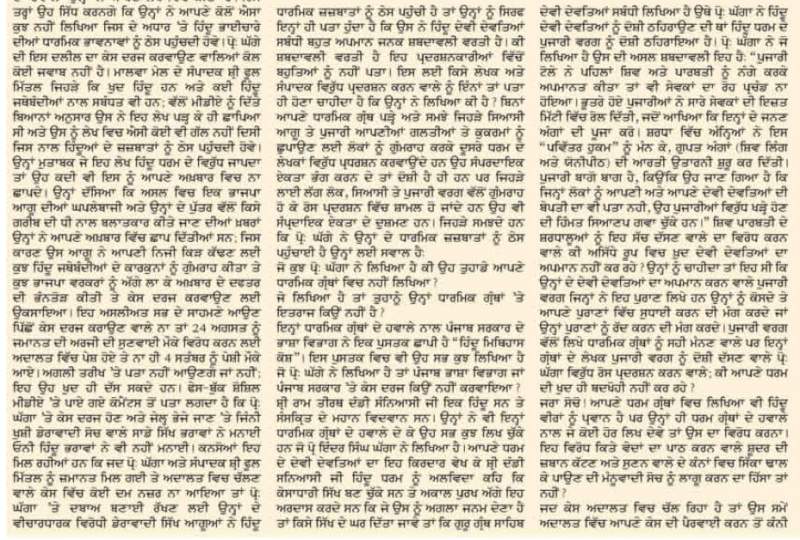 ਤਰ੍ਹਾਂ ਉਹ ਸਿੱਧ ਕਰਨਗੇ ਕਿ ਉਨ੍ਹਾਂ ਨੇ ਆਪਣੇ ਕੋਲੋਂ ਐਸਾ
ਕੁਝ ਨਹੀਂ ਲਿਖਿਆ ਜਿਸ ਦੇ ਅਧਾਰ 'ਤੇ ਹਿੰਦੂ ਭਾਈਚਾਰੇ
ਦੀਆਂ ਧਾਰਮਿਕ ਭਾਵਨਾਵਾਂ ਨੂੰ ਠੇਸ ਪਹੁੰਚਦੀ ਹੋਵੇ। ਪ੍ਰੋ: ਘੱਗੇ
ਦੀ ਇਸ ਦਲੀਲ ਦਾ ਕੇਸ ਦਰਜ ਕਰਵਾਉਣ ਵਾਲਿਆਂ ਕੋਲ
ਕੋਈ ਜਵਾਬ ਨਹੀਂ ਹੈ। ਮਾਲਵਾ ਮੇਲ ਦੇ ਸੰਪਾਦਕ ਸ਼੍ਰੀ ਫੂਲ
ਮਿੱਤਲ ਜਿਹੜੇ ਕਿ ਖੁਦ ਹਿੰਦੂ ਹਨ ਅਤੇ ਕਈ ਹਿੰਦੂ
ਜਥੇਬੰਦੀਆਂ ਨਾਲ ਸਬੰਧਤ ਵੀ ਹਨ; ਵੱਲੋਂ ਮੀਡੀਏ ਨੂੰ ਦਿੱਤੇ
ਬਿਆਨਾਂ ਅਨੁਸਾਰ ਉਸ ਨੇ ਇਹ ਲੇਖ ਪੜ੍ਹ ਕੇ ਹੀ ਛਾਪਿਆ
ਸੀ ਅਤੇ ਉਸ ਨੂੰ ਲੇਖ ਵਿਚ ਐਸੀ ਕੋਈ ਵੀ ਗੱਲ ਨਹੀਂ ਦਿਸੀ
ਜਿਸ ਨਾਲ ਹਿੰਦੂਆਂ ਦੇ ਜਜ਼ਬਾਤਾਂ ਨੂੰ ਠੇਸ ਪਹੁੰਚਦੀ ਹੋਵੇ।
ਉਨ੍ਹਾਂ ਮੁਤਾਬਕ ਜੇ ਇਹ ਲੇਖ ਹਿੰਦੂ ਧਰਮ ਦੇ ਵਿਰੁੱਧ ਜਾਪਦਾ
ਤਾਂ ਉਹ ਕਦੀ ਵੀ ਇਸ ਨੂੰ ਆਪਣੇ ਅਖ਼ਬਾਰ ਵਿਚ ਨਾ
ਛਾਪਦੇ। ਉਨ੍ਹਾਂ ਦੱਸਿਆ ਕਿ ਅਸਲ ਵਿਚ ਇਕ ਭਾਜਪਾ
ਆਗੂ ਦੀਆਂ ਘਪਲੇਬਾਜੀ ਅਤੇ ਉਨ੍ਹਾਂ ਦੇ ਪੁੱਤਰ ਵੱਲੋਂ ਕਿਸੇ
ਗਰੀਬ ਦੀ ਧੀ ਨਾਲ ਬਲਾਤਕਾਰ ਕੀਤੇ ਜਾਣ ਦੀਆਂ ਖ਼ਬਰਾਂ
ਉਨ੍ਹਾਂ ਨੇ ਆਪਣੇ ਅਖ਼ਬਾਰ ਵਿੱਚ ਛਾਪ ਦਿੱਤੀਆਂ ਸਨ; ਜਿਸ
ਕਾਰਣ ਉਸ ਆਗੂ ਨੇ ਆਪਣੀ ਨਿਜੀ ਕਿੜ ਕੱਢਣ ਲਈ
ਕੁਝ ਹਿੰਦੂ ਜਥੇਬੰਦੀਆਂ ਦੇ ਕਾਰਕੁਨਾਂ ਨੂੰ ਗੁੰਮਰਾਹ ਕੀਤਾ ਤੇ
ਕੁਝ ਭਾਜਪਾ ਵਰਕਰਾਂ ਨੂੰ ਅੱਗੇ ਲਾ ਕੇ ਅਖ਼ਬਾਰ ਦੇ ਦਫਤਰ
ਦੀ ਭੰਨਤੋੜ ਕੀਤੀ ਤੇ ਕੇਸ ਦਰਜ ਕਰਵਾਉਣ ਲਈ
ਉਕਸਾਇਆ। ਇਹ ਅਸਲੀਅਤ ਸਭ ਦੇ ਸਾਹਮਣੇ ਆਉਣ
ਪਿੱਛੋਂ ਕੇਸ ਦਰਜ ਕਰਾਉਣ ਵਾਲੇ ਨਾ ਤਾਂ 24 ਅਗਸਤ ਨੂੰ
ਜ਼ਮਾਨਤ ਦੀ ਅਰਜੀ ਦੀ ਸੁਣਵਾਈ ਮੌਕੇ ਵਿਰੋਧ ਕਰਨ ਲਈ
ਅਦਾਲਤ ਵਿੱਚ ਪੇਸ਼ ਹੋਏ ਤੇ ਨਾ ਹੀ 4 ਸਤੰਬਰ ਨੂੰ ਪੇਸ਼ੀ ਮੌਕੇ
ਆਏ। ਅਗਲੀ ਤਰੀਖ 'ਤੇ ਪਤਾ ਨਹੀਂ ਆਉਣਗੇ ਜਾਂ ਨਹੀਂ;
ਇਹ ਉਹ ਖੁਦ ਹੀ ਦੱਸ ਸਕਦੇ ਹਨ। ਫੇਸ-ਬੁੱਕ ਸ਼ੋਸ਼ਿਲ
ਮੀਡੀਏ 'ਤੇ ਪਾਏ ਗਏ ਕੋਮੈਂਟਸ ਤੋਂ ਪਤਾ ਲਗਦਾ ਹੈ ਕਿ ਪ੍ਰੋ:
ਘੱਗਾ 'ਤੇ ਕੇਸ ਦਰਜ ਹੋਣ ਅਤੇ ਜੇਲ੍ਹ ਭੇਜੇ ਜਾਣ 'ਤੇ ਜਿੰਨੀ
ਖੁਸ਼ੀ ਡੇਰਾਵਾਦੀ ਸੋਚ ਵਾਲੇ ਸਾਡੇ ਸਿੱਖ ਭਰਾਵਾਂ ਨੇ ਮਨਾਈ
ਓਨੀ ਹਿੰਦੂ ਭਰਾਵਾਂ ਨੇ ਵੀ ਨਹੀਂ ਮਨਾਈ। ਕਨਸੋਆਂ ਇਹ
ਮਿਲ ਰਹੀਆਂ ਹਨ ਕਿ ਜਦ ਪ੍ਰੋ: ਘੱਗਾ ਅਤੇ ਸੰਪਾਦਕ ਸ਼੍ਰੀ ਫੂਲ
ਮਿੱਤਲ ਨੂੰ ਜ਼ਮਾਨਤ ਮਿਲ ਗਈ ਤੇ ਅਦਾਲਤ ਵਿਚ ਚੱਲਣ
ਵਾਲੇ ਕੇਸ ਵਿੱਚ ਕੋਈ ਦਮ ਨਜ਼ਰ ਨਾ ਆਇਆ ਤਾਂ ਪ੍ਰੋ:
ਘੱਗਾ 'ਤੇ ਦਬਾਅ ਬਣਾਈ ਰੱਖਣ ਲਈ ਉਨ੍ਹਾਂ ਦੇ
ਵੀਚਾਰਧਾਰਕ ਵਿਰੋਧੀ ਡੇਰਾਵਾਦੀ ਸਿੱਖ ਆਗੂਆਂ ਨੇ ਹਿੰਦੂ
ਧਾਰਮਿਕ ਜ਼ਜ਼ਬਾਤਾਂ ਨੂੰ ਠੇਸ ਪਹੁੰਚੀ ਹੈ ਤਾਂ ਉਨ੍ਹਾਂ ਨੂੰ ਸਿਰਫ
ਇਨ੍ਹਾਂ ਹੀ ਪਤਾ ਹੁੰਦਾ ਹੈ ਕਿ ਉਸ ਨੇ ਹਿੰਦੂ ਦੇਵੀ ਦੇਵਤਿਆਂ
ਸਬੰਧੀ ਬਹੁਤ ਅਪਮਾਨ ਜਨਕ ਸ਼ਬਦਾਵਲੀ ਵਰਤੀ ਹੈ। ਕੀ
ਸ਼ਬਦਾਵਲੀ ਵਰਤੀ ਹੈ ਇਹ ਪ੍ਰਦਰਸ਼ਨਕਾਰੀਆਂ ਵਿੱਚੋਂ
ਬਹੁਤਿਆਂ ਨੂੰ ਨਹੀਂ ਪਤਾ। ਇਸ ਲਈ ਕਿਸੇ ਲੇਖਕ ਅਤੇ
ਸੰਪਾਦਕ ਵਿਰੁੱਧ ਪ੍ਰਦਰਸ਼ਨ ਕਰਨ ਵਾਲੇ ਨੂੰ ਇੰਨਾਂ ਤਾਂ ਪਤਾ
ਹੀ ਹੋਣਾ ਚਾਹੀਦਾ ਹੈ ਕਿ ਉਨ੍ਹਾਂ ਨੇ ਲਿਖਿਆ ਕੀ ਹੈ ? ਬਿਨਾਂ
ਆਪਣੇ ਧਾਰਮਿਕ ਗ੍ਰੰਥ ਪੜ੍ਹੇ ਅਤੇ ਸਮਝੇ ਜਿਹੜੇ ਸਿਆਸੀ
ਆਗੂ ਤੇ ਪੁਜਾਰੀ ਆਪਣੀਆਂ ਗਲਤੀਆਂ ਤੇ ਕੁਕਰਮਾਂ ਨੂੰ
ਛੁਪਾਉਣ ਲਈ ਲੋਕਾਂ ਨੂੰ ਗੁੰਮਰਾਹ ਕਰਕੇ ਦੂਸਰੇ ਧਰਮ ਦੇ
ਲੇਖਕਾਂ ਵਿਰੁੱਧ ਪ੍ਰਧਰਸ਼ਨ ਕਰਵਾਉਂਦੇ ਹਨ ਉਹ ਸੰਪਰਦਾਇਕ
ਏਕਤਾ ਭੰਗ ਕਰਨ ਦੇ ਤਾਂ ਦੋਸ਼ੀ ਹੈ ਹੀ ਹਨ ਪਰ ਜਿਹੜੇ
ਲਾਈ ਲੱਗ ਲੋਕ, ਸਿਆਸੀ ਤੇ ਪੁਜਾਰੀ ਵਰਗ ਵੱਲੋਂ ਗੁੰਮਰਾਹ
ਹੋ ਕੇ ਰੋਸ ਪ੍ਰਦਰਸ਼ਨ ਵਿੱਚ ਸ਼ਾਮਲ ਹੋ ਜਾਂਦੇ ਹਨ ਉਹ ਵੀ
ਸੰਪ੍ਰਦਾਇਕ ਏਕਤਾ ਦੇ ਦੁਸ਼ਮਣ ਹਨ। ਜਿਹੜੇ ਸਮਝਦੇ ਹਨ
ਕਿ ਪ੍ਰੋ: ਘੱਗੇ ਨੇ ਉਨ੍ਹਾਂ ਦੇ ਧਾਰਮਿਕ ਜ਼ਜ਼ਬਾਤਾਂ ਨੂੰ ਠੇਸ
ਪਹੁੰਚਾਈ ਹੈ ਉਨ੍ਹਾਂ ਲਈ ਸਵਾਲ ਹੈ:
ਜੋ ਕੁਝ ਪ੍ਰੋ: ਘੱਗਾ ਨੇ ਲਿਖਿਆ ਹੈ ਕੀ ਉਹ ਤੁਹਾਡੇ ਆਪਣੇ
ਧਾਰਮਿਕ ਗ੍ਰੰਥਾਂ ਵਿਚ ਨਹੀਂ ਲਿਖਿਆ ?
ਜੇ ਲਿਖਿਆ ਹੈ ਤਾਂ ਤੁਹਾਨੂੰ ਉਨ੍ਹਾਂ ਧਾਰਮਿਕ ਗ੍ਰੰਥਾਂ 'ਤੇ
ਇਤਰਾਜ਼ ਕਿਉਂ ਨਹੀਂ ਹੈ ?
ਇਨ੍ਹਾਂ ਧਾਰਮਿਕ ਗ੍ਰੰਥਾਂ ਦੇ ਹਵਾਲੇ ਨਾਲ ਪੰਜਾਬ ਸਰਕਾਰ ਦੇ
ਭਾਸ਼ਾ ਵਿਭਾਗ ਨੇ ਇਕ ਪੁਸਤਕ ਛਾਪੀ ਹੈ "ਹਿੰਦੂ ਮਿਥਿਹਾਸ
ਕੋਸ਼"। ਇਸ ਪੁਸਤਕ ਵਿਚ ਵੀ ਉਹ ਸਭ ਕੁਝ ਲਿਖਿਆ ਹੈ
ਜੋ ਪ੍ਰੋ: ਘੱਗੇ ਨੇ ਲਿਖਿਆ ਹੈ ਤਾਂ ਪੰਜਾਬ ਭਾਸ਼ਾ ਵਿਭਾਗ ਜਾਂ
ਪੰਜਾਬ ਸਰਕਾਰ 'ਤੇ ਕੇਸ ਦਰਜ ਕਿਉਂ ਨਹੀਂ ਕਰਵਾਇਆ ?
ਸ਼੍ਰੀ ਰਾਮ ਤੀਰਥ ਦੰਡੀ ਸੰਨਿਆਸੀ ਜੀ ਇਕ ਹਿੰਦੂ ਸਨ ਤੇ
ਸੰਸਕ੍ਰਿਤ ਦੇ ਮਹਾਨ ਵਿਦਵਾਨ ਸਨ। ਉਨ੍ਹਾਂ ਨੇ ਵੀ ਇਨ੍ਹਾਂ
ਧਾਰਮਿਕ ਗ੍ਰੰਥਾਂ ਦੇ ਹਵਾਲੇ ਦੇ ਕੇ ਉਹ ਸਭ ਕੁਝ ਲਿਖ ਚੁੱਕੇ
ਹਨ ਜੋ ਪ੍ਰੋ ਇੰਦਰ ਸਿੰਘ ਘੱਗਾ ਨੇ ਲਿਖਿਆ ਹੈ। ਆਪਣੇ ਧਰਮ
ਦੇ ਦੇਵੀ ਦੇਵਤਿਆਂ ਦਾ ਇਹ ਕਿਰਦਾਰ ਵੇਖ ਕੇ ਸ਼੍ਰੀ ਦੰਡੀ
ਸਨਿਆਸੀ ਜੀ ਹਿੰਦੂ ਧਰਮ ਨੂੰ ਅਲਵਿਦਾ ਕਹਿ ਕਿ
ਕੇਸਾਧਾਰੀ ਸਿੱਖ ਬਣ ਚੁੱਕੇ ਸਨ ਤੇ ਅਕਾਲ ਪੁਰਖ ਅੱਗੇ ਇਹ
ਅਰਦਾਸ ਕਰਦੇ ਸਨ ਕਿ ਜੇ ਉਸ ਨੂੰ ਅਗਲਾ ਜਨਮ ਦੇਣਾ ਹੈ
ਤਾਂ ਕਿਸੇ ਸਿੱਖ ਦੇ ਘਰ ਦਿੱਤਾ ਜਾਵੇ ਤਾਂ ਕਿ ਗੁਰੂ ਗ੍ਰੰਥ ਸਾਹਿਬ
ਦੇਵੀ ਦੇਵਤਿਆਂ ਸਬੰਧੀ ਲਿਖਿਆ ਹੈ ਉਥੇ ਪ੍ਰੋ: ਘੱਗਾ ਨੇ ਹਿੰਦੂ
ਦੇਵੀ ਦੇਵਤਿਆਂ ਨੂੰ ਦੋਸ਼ੀ ਠਹਿਰਾਉਣ ਦੀ ਥਾਂ ਹਿੰਦੂ ਧਰਮ ਦੇ
ਪੁਜਾਰੀ ਵਰਗ ਨੂੰ ਦੋਸ਼ੀ ਠਹਿਰਾਇਆ ਹੈ। ਪ੍ਰੋ: ਘੱਗਾ ਨੇ ਜੋ
ਲਿਖਿਆ ਹੈ ਉਸ ਦੀ ਅਸਲ ਸ਼ਬਦਾਵਲੀ ਇਹ ਹੈ: "ਪੁਜਾਰੀ
ਟੋਲੇ ਨੇ ਪਹਿਲਾਂ ਸ਼ਿਵ ਅਤੇ ਪਾਰਬਤੀ ਨੂੰ ਨੰਗੇ ਕਰਕੇ
ਅਪਮਾਨਤ ਕੀਤਾ ਤਾਂ ਵੀ ਸੇਵਕਾਂ ਦਾ ਰੋਹ ਪ੍ਰਚੰਡ ਨਾ
ਹੋਇਆ। ਭੂਤਰੇ ਹੋਏ ਪੁਜਾਰੀਆਂ ਨੇ ਸਾਰੇ ਸੇਵਕਾਂ ਦੀ ਇਜ਼ਤ
ਮਿੱਟੀ ਵਿੱਚ ਰੋਲ ਦਿੱਤੀ, ਜਦੋਂ ਆਖਿਆ ਕਿ ਇਨ੍ਹਾਂ ਦੇ ਜਨਣ
ਅੰਗਾਂ ਦੀ ਪੂਜਾ ਕਰੋ। ਸ਼ਰਧਾ ਵਿੱਚ ਅੰਨ੍ਹਿਆਂ ਨੇ ਇਸ
"ਪਵਿੱਤਰ ਹੁਕਮ" ਨੂੰ ਮੰਨ ਕੇ, ਗੁਪਤ ਅੰਗਾਂ (ਸ਼ਿਵ ਲਿੰਗ
ਅਤੇ ਯੋਨੀਪੀਠ) ਦੀ ਆਰਤੀ ਉਤਾਰਨੀ ਸ਼ੁਰੂ ਕਰ ਦਿੱਤੀ।
ਪੁਜਾਰੀ ਬਾਗੋ ਬਾਗ ਹੈ, ਕਿਉਂਕਿ ਉਹ ਜਾਣ ਗਿਆ ਹੈ ਕਿ
ਜਿਨ੍ਹਾਂ ਲੋਕਾਂ ਨੂੰ ਆਪਣੀ ਅਤੇ ਆਪਣੇ ਦੇਵੀ ਦੇਵਤਿਆਂ ਦੀ
ਬੇਪਤੀ ਦਾ ਵੀ ਪਤਾ ਨਹੀਂ, ਉਹ ਪੁਜਾਰੀਆਂ ਵਿਰੁੱਧ ਖੜ੍ਹੇ ਹੋਣ
ਦੀ ਹਿੰਮਤ ਸਿਆਣਪ ਗਵਾ ਚੁੱਕੇ ਹਨ।" ਸ਼ਿਵ ਪਾਰਬਤੀ ਦੇ
ਸ਼ਰਧਾਲੂਆਂ ਨੂੰ ਇਹ ਸੱਚ ਦੱਸਣ ਵਾਲੇ ਦਾ ਵਿਰੋਧ ਕਰਨ
ਵਾਲੇ ਕੀ ਅਸਿੱਧੇ ਰੂਪ ਵਿਚ ਖ਼ੁਦ ਦੇਵੀ ਦੇਵਤਿਆਂ ਦਾ
ਅਪਮਾਨ ਨਹੀਂ ਕਰ ਰਹੇ ? ਉਨ੍ਹਾਂ ਨੂੰ ਚਾਹੀਦਾ ਤਾਂ ਇਹ ਸੀ ਕਿ
ਉਨ੍ਹਾਂ ਦੇ ਦੇਵੀ ਦੇਵਤਿਆਂ ਦਾ ਅਪਮਾਨ ਕਰਨ ਵਾਲੇ ਪੁਜਾਰੀ
ਵਰਗ ਜਿਨ੍ਹਾਂ ਨੇ ਇਹ ਪੁਰਾਣ ਲਿਖੇ ਹਨ ਉਨ੍ਹਾਂ ਨੂੰ ਕੋਸਦੇ ਤੇ
ਆਪਣੇ ਪੁਰਾਣਾਂ ਵਿੱਚ ਸੁਧਾਈ ਕਰਨ ਦੀ ਮੰਗ ਕਰਦੇ ਜਾਂ
ਉਨ੍ਹਾਂ ਪੁਰਾਣਾਂ ਨੂੰ ਰੱਦ ਕਰਨ ਦੀ ਮੰਗ ਕਰਦੇ। ਪੁਜਾਰੀ ਵਰਗ
ਵੱਲੋਂ ਲਿਖੇ ਧਾਰਮਿਕ ਗ੍ਰੰਥਾਂ ਨੂੰ ਸਹੀ ਮੰਨਣ ਵਾਲੇ ਪਰ ਇਨ੍ਹਾਂ
ਗ੍ਰੰਥਾਂ ਦੇ ਲੇਖਕ ਪੁਜਾਰੀ ਵਰਗ ਨੂੰ ਦੋਸ਼ੀ ਦੱਸਣ ਵਾਲੇ ਪ੍ਰੋ:
ਘੱਗਾ ਵਿਰੁੱਧ ਰੋਸ ਪ੍ਰਦਰਸ਼ਨ ਕਰਨ ਵਾਲੇ; ਕੀ ਆਪਣੇ ਧਰਮ
ਦੀ ਖੁਦ ਹੀ ਬਦਖੋਹੀ ਨਹੀਂ ਕਰ ਰਹੇ ?
ਜਰਾ ਸੋਚੋ! ਆਪਣੇ ਧਰਮ ਗ੍ਰੰਥਾਂ ਵਿਚ ਲਿਖਿਆ ਵੀ ਹਿੰਦੂ
ਵੀਰਾਂ ਨੂੰ ਪ੍ਰਵਾਨ ਹੈ ਪਰ ਉਨ੍ਹਾਂ ਹੀ ਧਰਮ ਗ੍ਰੰਥਾਂ ਦੇ ਹਵਾਲੇ
ਨਾਲ ਜੇ ਕੋਈ ਹੋਰ ਲਿਖ ਦੇਵੇ ਤਾਂ ਉਸ ਦਾ ਵਿਰੋਧ ਕਰਨਾ।
ਇਹ ਵਿਰੋਧ ਕਿਤੇ ਵੇਦਾਂ ਦਾ ਪਾਠ ਕਰਨ ਵਾਲੇ ਸ਼ੂਦਰ ਦੀ
ਜ਼ਬਾਨ ਕੱਟਣ ਅਤੇ ਸੁਣਨ ਵਾਲੇ ਦੇ ਕੰਨਾਂ ਵਿਚ ਸਿੱਕਾ ਢਾਲ
ਕੇ ਪਾਉਣ ਦੀ ਮੰਨੂਵਾਦੀ ਸੋਚ ਨੂੰ ਲਾਗੂ ਕਰਨ ਦਾ ਹਿੱਸਾ ਤਾਂ
ਨਹੀਂ ?
ਜਦ ਕੇਸ ਅਦਾਲਤ ਵਿਚ ਚੱਲ ਰਿਹਾ ਹੈ ਤਾਂ ਉਸ ਸਮੇਂ
ਅਦਾਲਤ ਵਿੱਚ ਆਪਣੇ ਕੇਸ ਦੀ ਪੈਰਵਾਈ ਕਰਨ ਤੋਂ ਕੰਨੀ